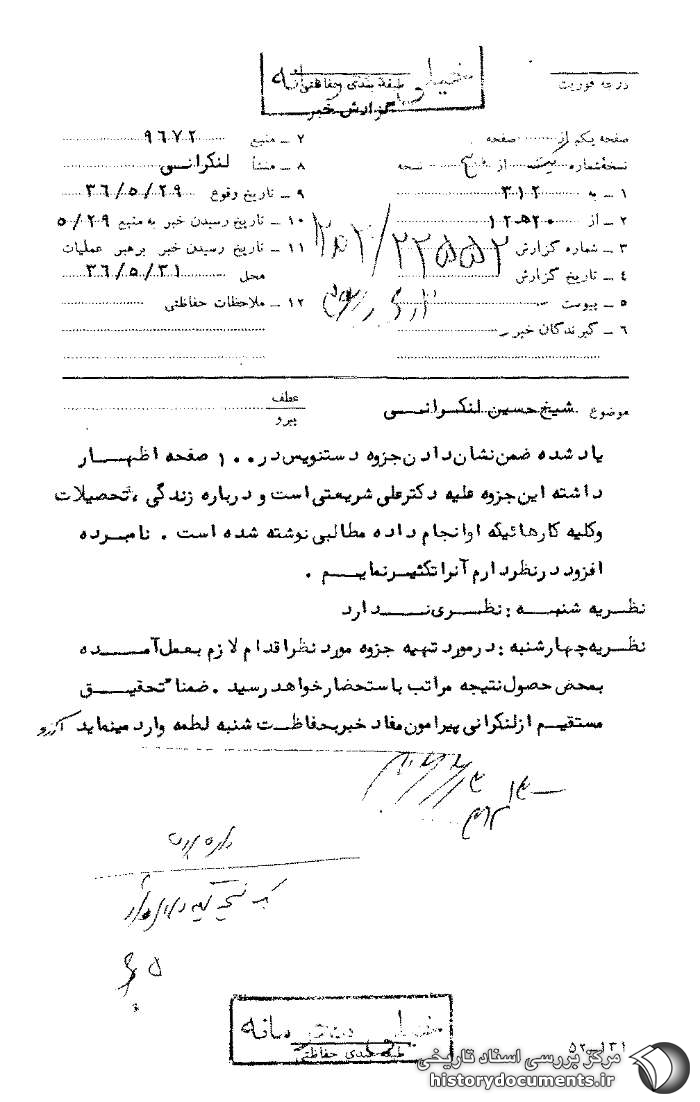 خیلی محرمانه
طبقه بندی حفاظتی
گزارش خبر
درجه فوریت
صفحه یکم از صفحه
نسخه شماره از نسخه
۱ ـ به ۳۱۲
۲ ـ از ۱۲ه۲۰
۳ ـ شماره گزارش ۲۲۵۵۲/
۴ ـ تاریخ گزارش
۵ ـ پیوست
۶ ـ گیرندگان خبر
۷ ـ منبع ۹۶۷۲
۸ ـ منشأ لنکرانی
۹ ـ تاریخ وقوع ۳۶/۵/۲۹
۱۰ ـ تاریخ رسیدن خبر به منبع ۵/۲۹
۱۱ ـ تاریخ رسیدن خبر برهبر عملیات
محل ۳۶/۵/۳۱
۱۲ ـ ملاحظات حفاظتی
موضوع شیخ حسین لنکرانی
عطف
پیرو
یاد شده ضمن نشان دادن جزوه دستنویس در ۱۰۰ صفحه اظهار
داشته این جزوه علیه دکتر علی شریعتی است و درباره زندگی ، تحصیلات
وکلیه کارهائیکه او انجام داده مطالبی نوشته شده است . نامبرده
افزود در نظر دارم آنرا تکثیر نمایم .
نظریه شنبه : نظری ندارد
نظریه چهارشنبه : در مورد تهیه جزوه مورد نظر اقدام لازم بعمل آمده
بمحض حصول نتیجه مراتب باستحضار خواهد رسید . ضمنا تحقیق
مستقیم از لنکرانی پیرامون مفاد خبر بحفاظت شنبه لطمه وارد مینماید
خیلی محرمانه
طبقه بندی حفاظتی
۵۲ـ۱۳۱
مرکز بررسی اسناد تاریخی
historydocuments.ir